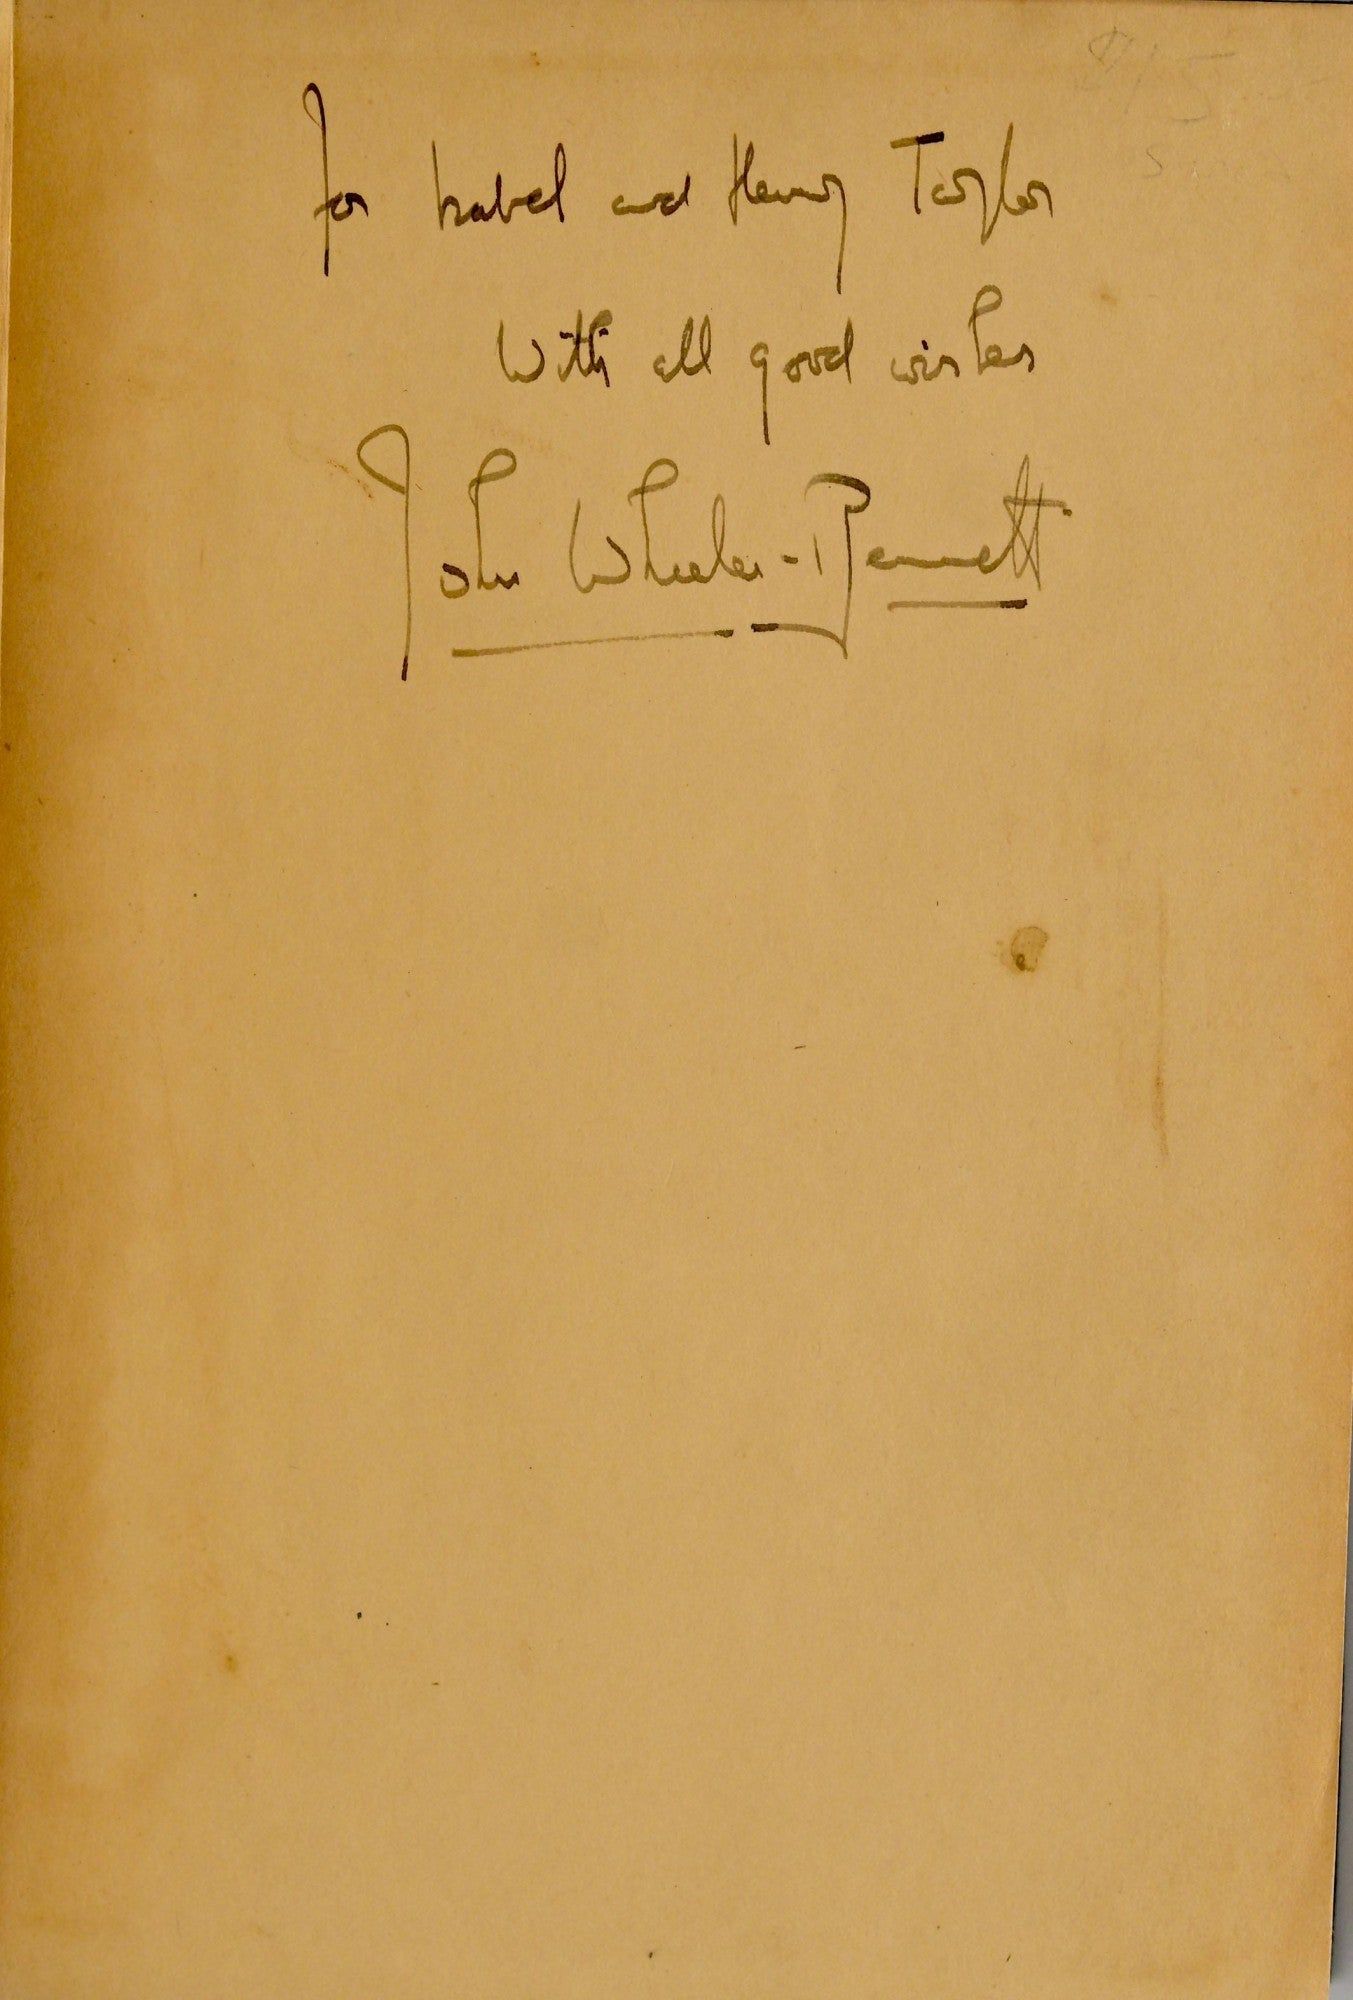 $15
For Isabel and Henry Taylor
With all good wishes
John Wheeler-Bennett